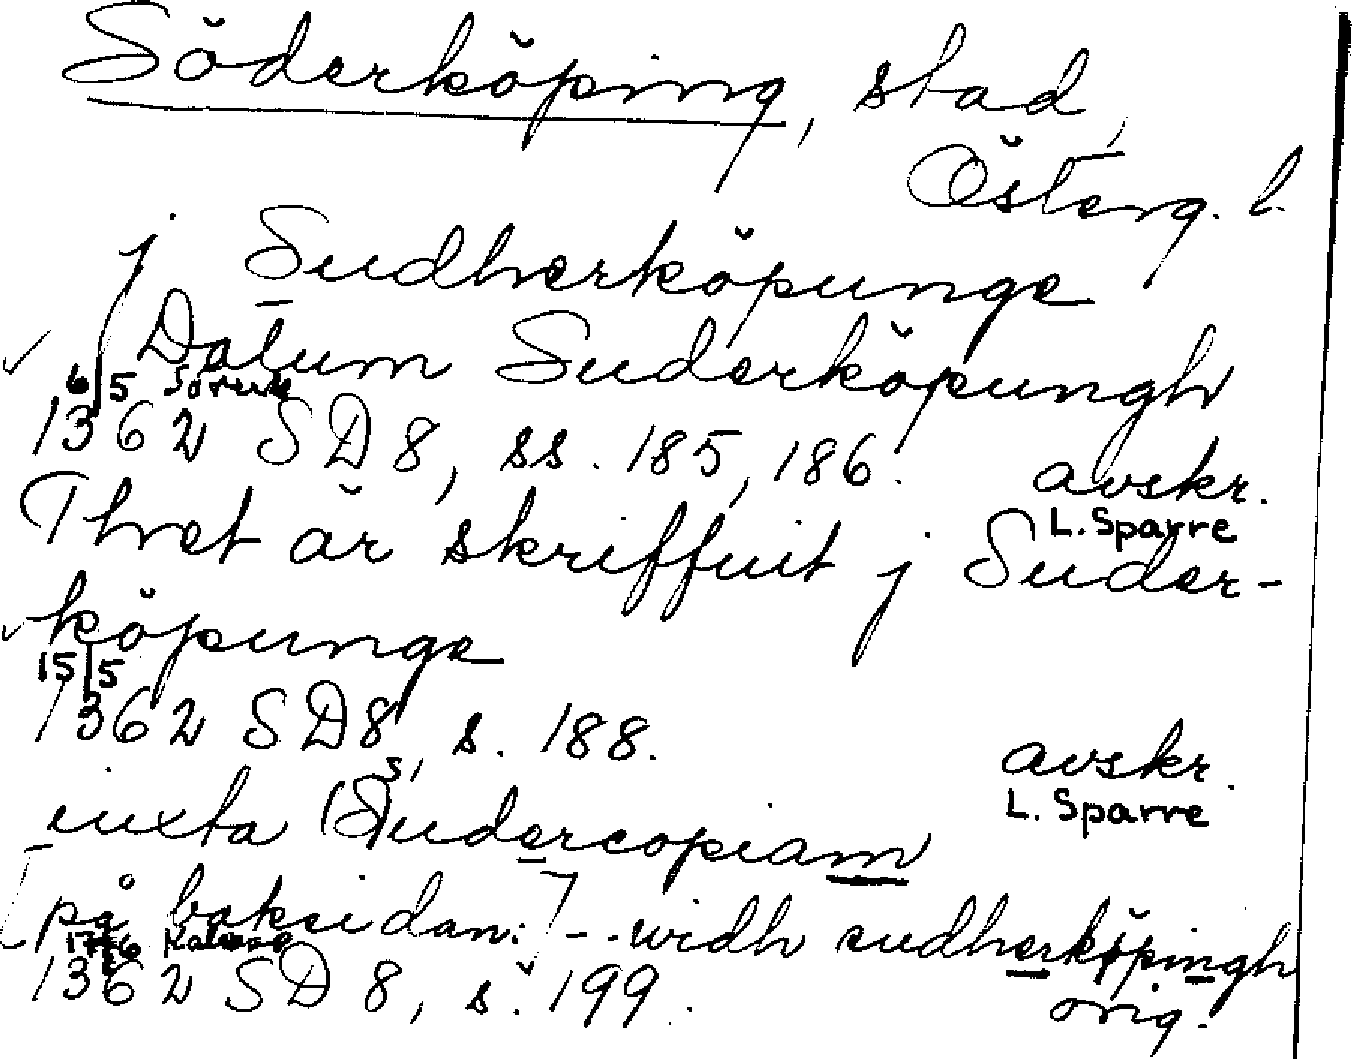 Söderköping, stad,
Österg. l.
j Sudherköpunge
Datum Suderköpungh
6/5
1362 SD8, ss. 185, 186. avskr.
L. Sparre
Thet är skriffuit j Suder-
köpunge
15/5
1362 SD8, s. 188. avskr.
L. Sparre
iuxta Sudercopiam
[på baksidan:] -- widh sudherköpingh
1362 SD 8, s. 199. orig.